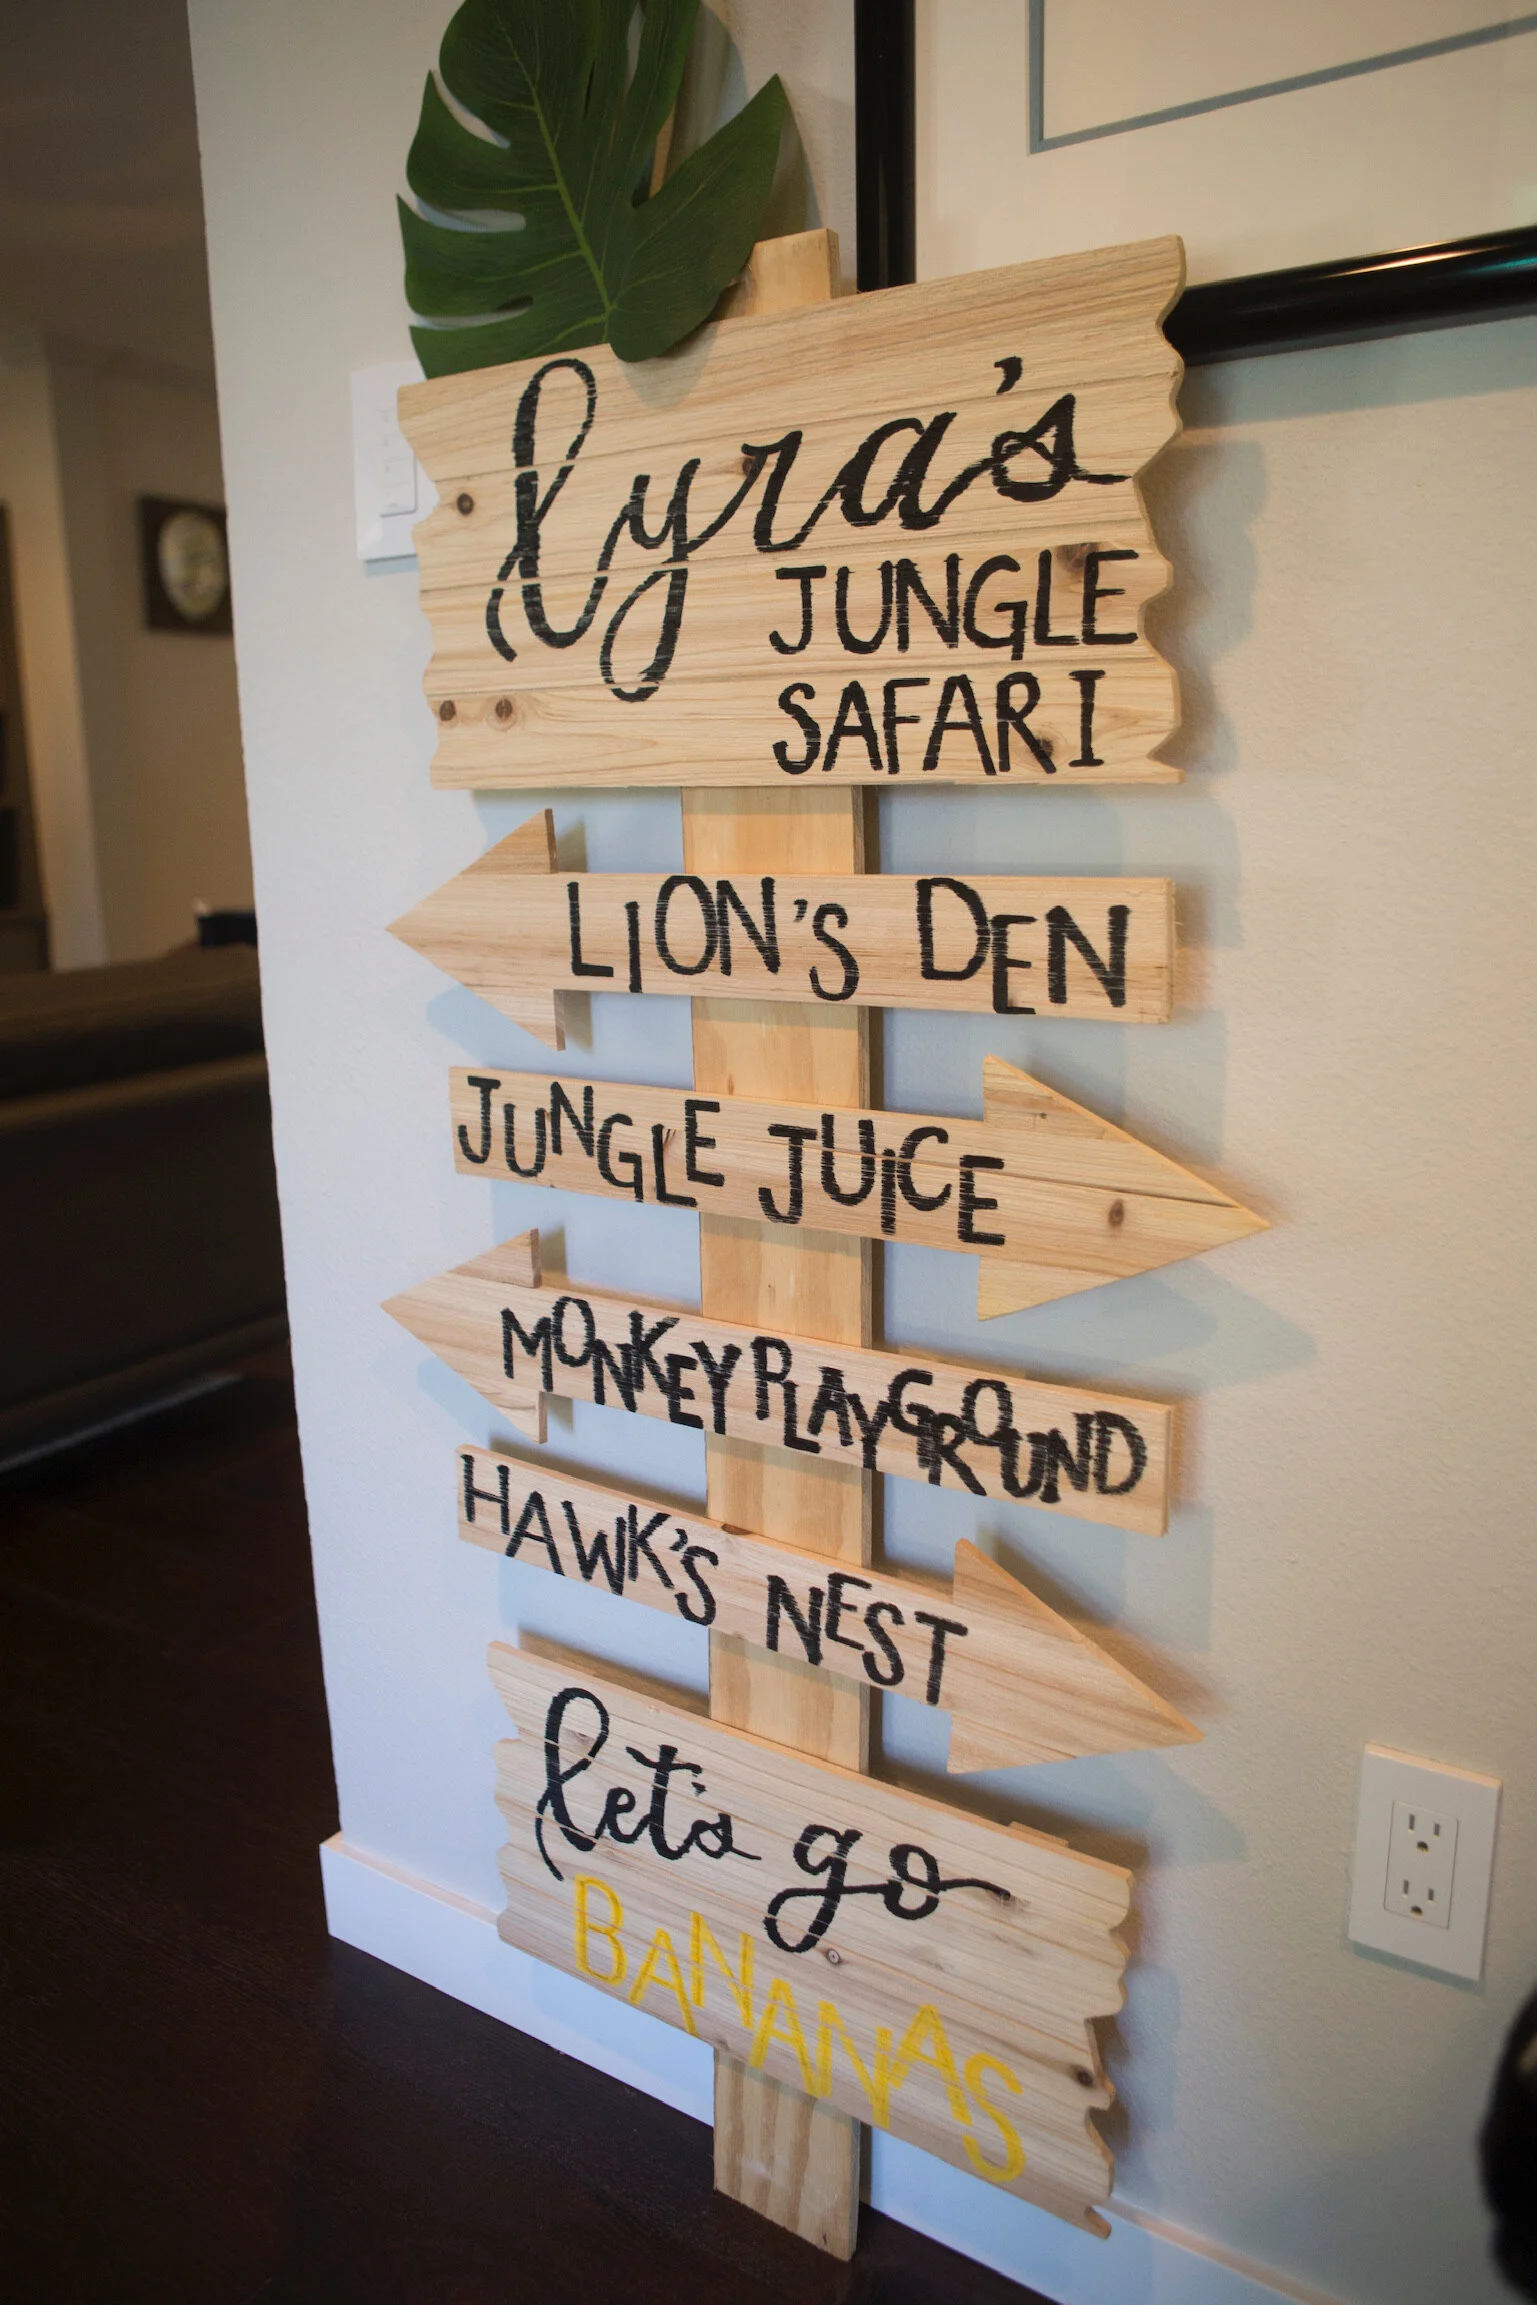 lyra's
JUNGLE
SAFARI
LION'S DEN
JUNGLE JUICE
MONKEY PLAYGROUND
HAWK'S NEST
let's go
BANANAS